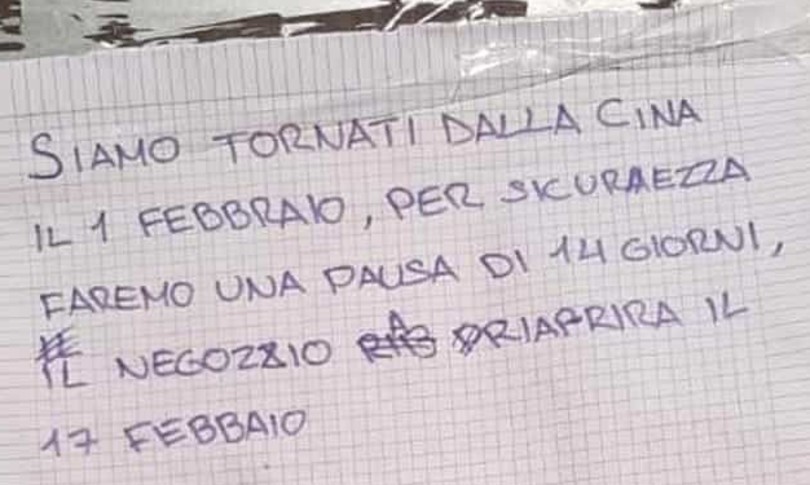 SIAMO TORNATI DALLA CINA
IL 1 FEBBRAIO, PER SICURAEZZA
FAREMO UNA PAUSA DI 14 GIORNI,
IL NEGOZZIO RIAPRIRA IL
17 FEBBAIO